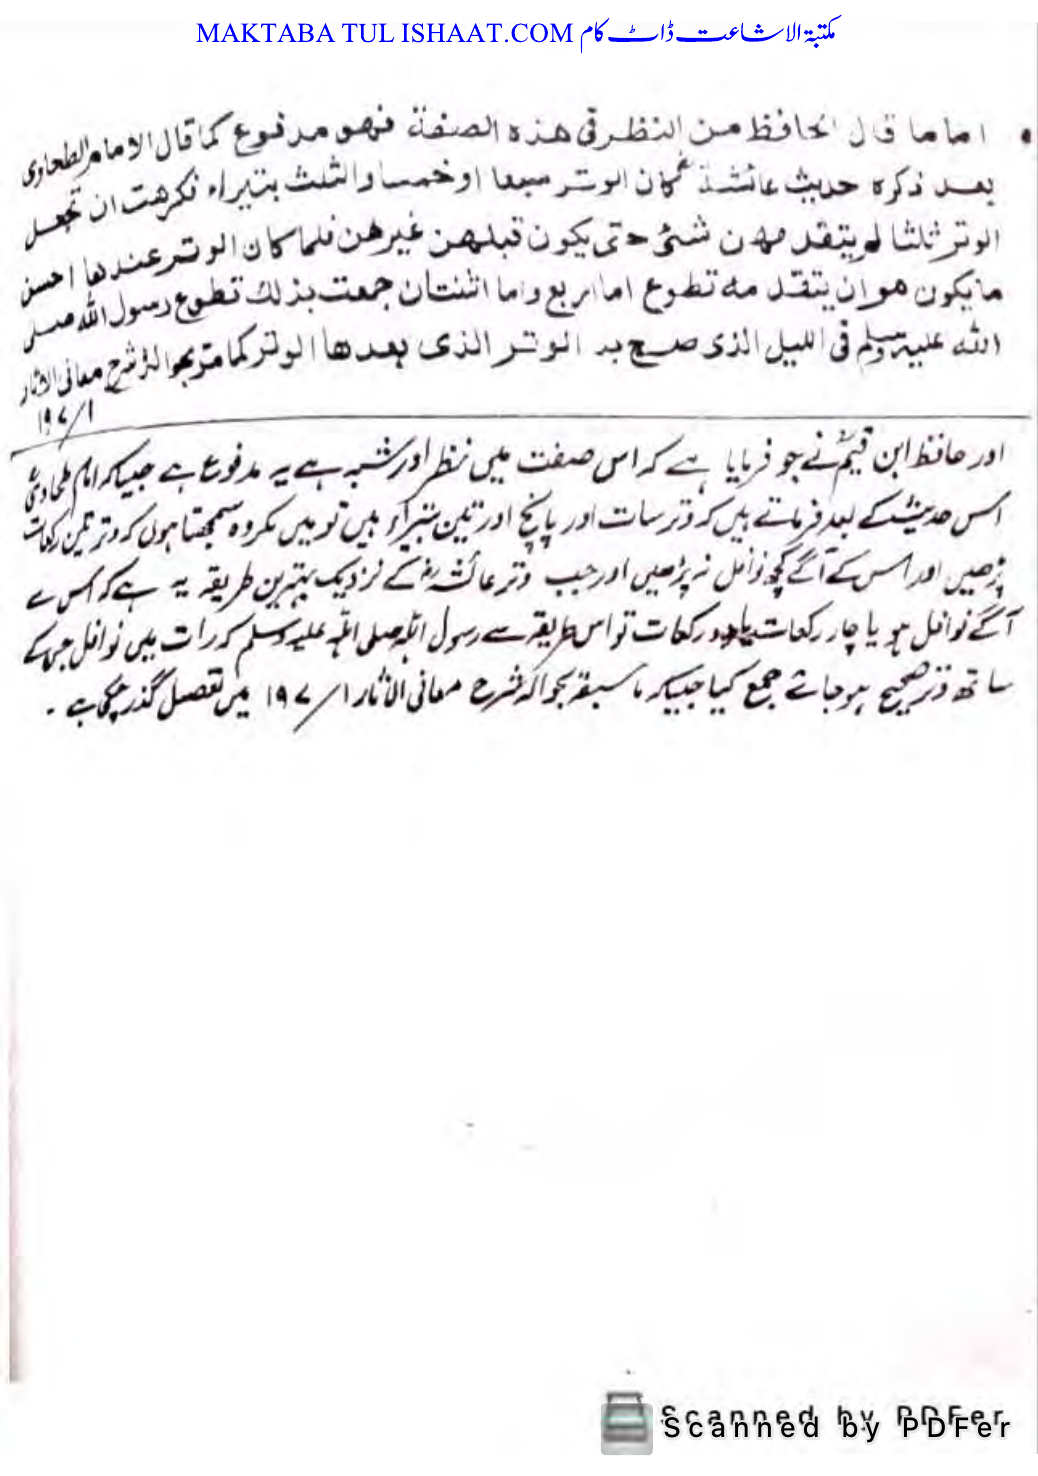 MAKTABA TUL ISHAAT.COM مکتبة الاشاعت ڈاٹ کام
• اما ما قال الحافظ من النظر فی هذه الصفة فهو مدفوع کما قال الامام الطحاوی
بعد ذکره حدیث عائشة کان الوتر سبعا او خمسا والثلث بتیراء فکرهت ان تجعل
الوتر ثلثا لم یتقد مهن شئی حتی یکون قبلهن غیرهن فلما کان الوتر عندها احسن
ما یکون هو ان یتقد مه تطوع اما اربع واما اثنتان جمعت بذلک تطوع رسول الله صلی
الله علیه وسلم فی اللیل الذی صح به الوتر الذی بعدها الوتر کما مر شرح معانی الاثار
۱/۱۹۷
اور حافظ ابن قیمؒ نے جو فرمایا ہے کہ اس صفت میں نظر اور شبہ ہے یہ مدفوع ہے جیسا کہ امام طحاویؒ
اس حدیث کے بعد فرماتے ہیں کہ وتر سات اور پانچ اور تین بتیراء ہیں تو میں مکروہ سمجھتا ہوں کہ وتر تین رکعات
پڑھیں اور اس کے آگے کچھ نوافل نہ پڑھیں اور جب وتر عائشہؓ کے نزدیک بہترین طریقہ یہ ہے کہ اس سے
آگے نوافل ہو یا چار رکعات یا دو رکعات تو اس طریقہ سے رسول اللہ صلی اللہ علیہ وسلم کہ رات میں نوافل جس کے
ساتھ وتر صحیح ہو جائے جمع کیا جیسا کہ ما سبق بحوالہ شرح معانی الاثار ۱/۱۹۷ میں تفصیل گذر چکی ہے ۔
Scanned by PDFer
Scanned by PDFer